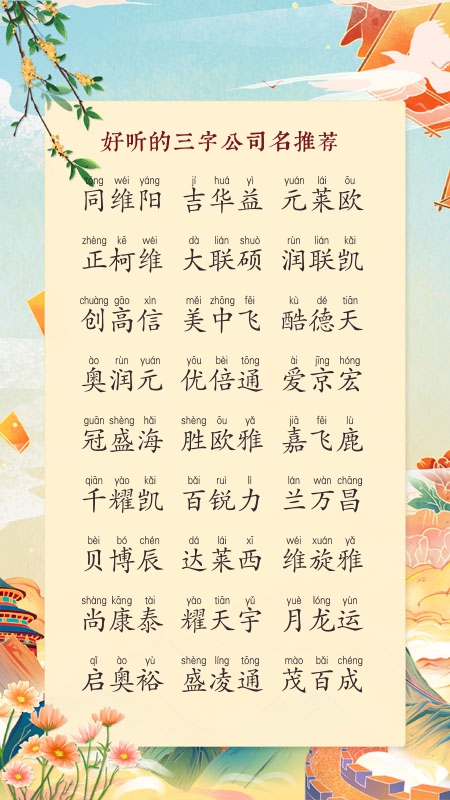 好听的三字公司名推荐
tóng wéi yáng jí huá yì yuán lái ōu
同维阳 吉华益 元莱欧
zhèng kē wéi dà lián shuò rùn lián kǎi
正柯维 大联硕 润联凯
chuàng gāo xìn měi zhōng fēi kù dé tiān
创高信 美中飞 酷德天
ào rùn yuán yōu bèi tōng ài jīng hóng
奥润元 优倍通 爱京宏
guān shèng hǎi shèng ōu yǎ jiā fēi lù
冠盛海 胜欧雅 嘉飞鹿
qiān yào kǎi bǎi ruì lì lán wàn chāng
千耀凯 百锐力 兰万昌
bèi bó chén dá lái xī wéi xuán yǎ
贝博辰 达莱西 维旋雅
shàng kāng tài yào tiān yǔ yuè lóng yùn
尚康泰 耀天宇 月龙运
qǐ ào yù shèng líng tōng mào bǎi chéng
启奥裕 盛凌通 茂百成